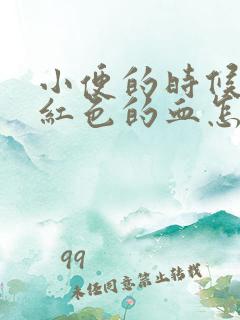 小便的时候
紅色的血怎
99
未经同意禁止转载